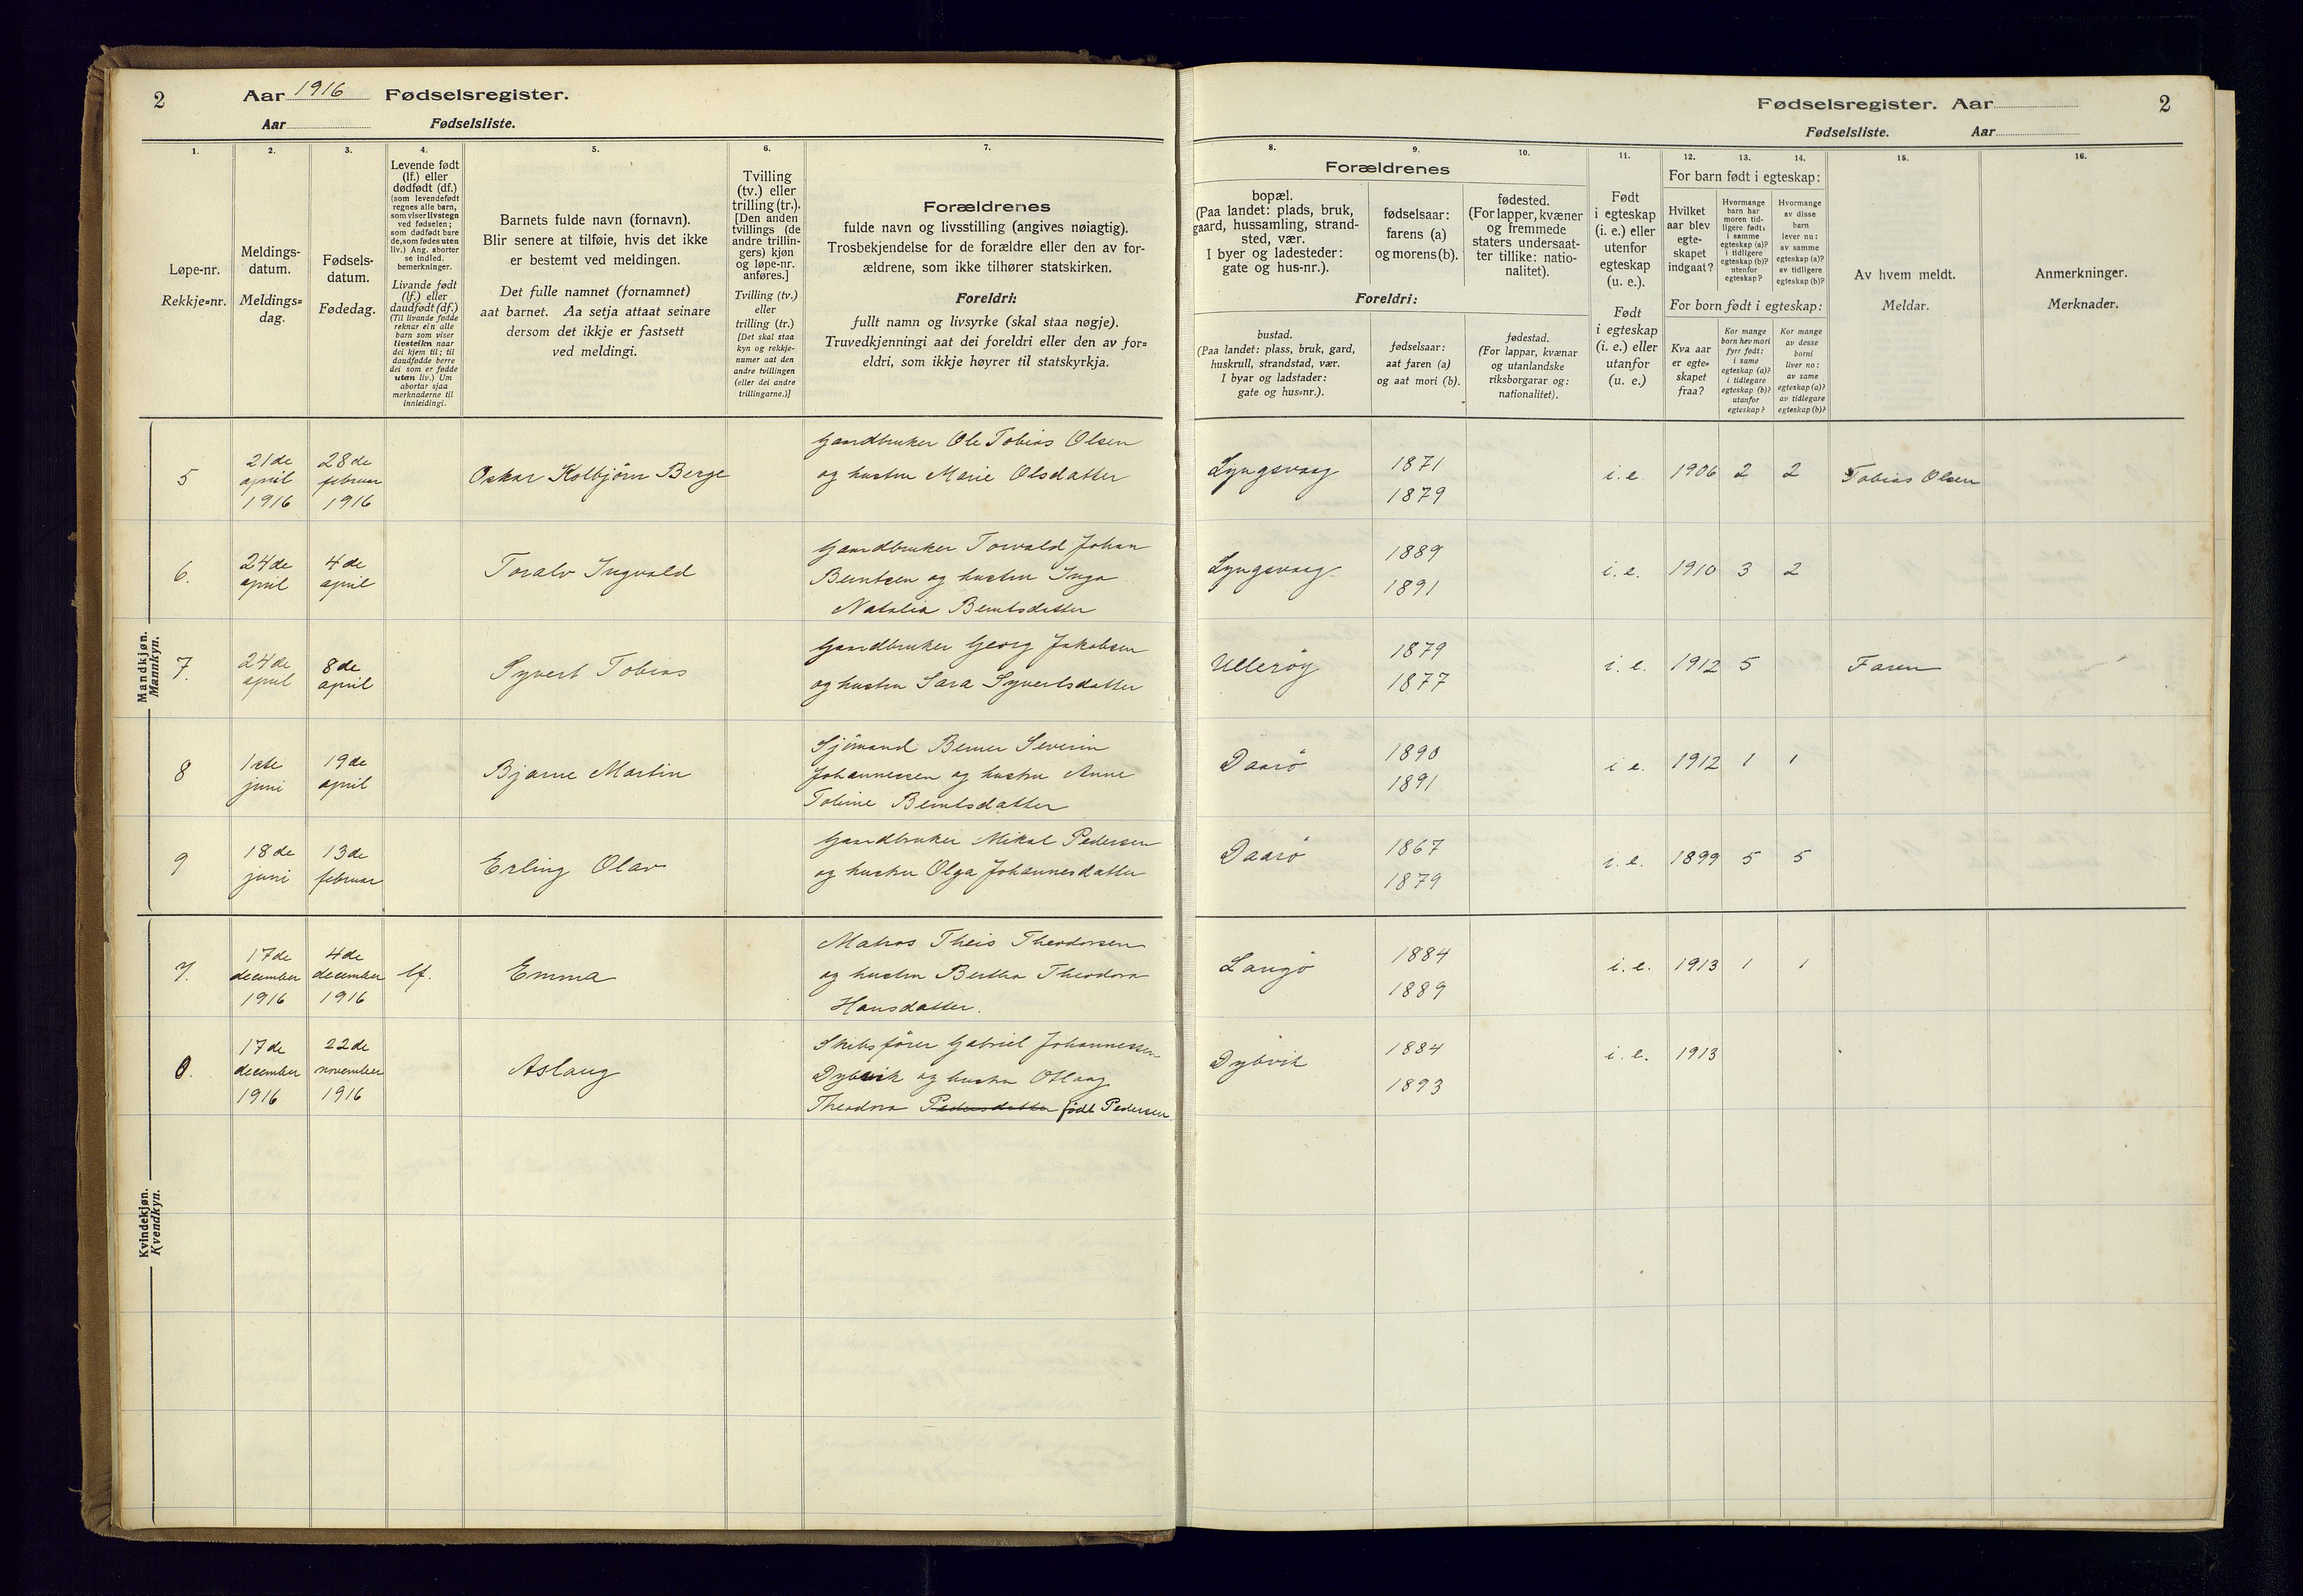 2
Aar 1916 Fødselsregister.
Aar Fødselsliste.
1.
2.
3.
4.
5.
6.
7.
Løpe-nr.
Rekkje=nr.
Meldings-
datum.
Meldings=
dag.
Fødsels-
datum.
Fødedag.
Levende født
(lf.) eller
dødfødt (df.)
(som levendefødt
regnes alle barn,
som viser livstegn
ved fødselen;
som dødfødt bare
de, som fødes uten
liv.) Ang. aborter
se indled.
bemerkninger.
Livande født
(lf.) eller
daudfødt (df.)
(Til livande fødde
reknar ein alle
barn som viser
livsteikn naar
dei kjem til; til
daudfødde berre
dei som er fødde
utan liv.) Um
abortar sjaa
merknaderne til
innleidingi.
Barnets fulde navn (fornavn).
Blir senere at tilføie, hvis det ikke
er bestemt ved meldingen.
Det fulle namnet (fornamnet)
aat barnet. Aa setja attaat seinare
dersom det ikkje er fastsett
ved meldingi.
Tvilling
(tv.) eller
trilling (tr.).
[Den anden
tvillings (de
andre trillin-
gers) kjøn
og løpe-nr.
anføres.]
Tvilling (tv.)
eller
trilling (tr.)
[Det skal staa
kyn og rekkje-
numer aat den
andre tvillingen
(eller dei andre
trillingarne.)]
Forældrenes
fulde navn og livsstilling (angives nøiagtig).
Trosbekjendelse for de forældre eller den av for-
ældrene, som ikke tilhører statskirken.
Foreldri:
fullt namn og livsyrke (skal staa nøgje).
Truvedkjenningi aat dei foreldri eller den av for=
eldri, som ikkje høyrer til statskyrkja.
Fødselsregister. Aar
2
Fødselsliste. Aar
8.
9.
10.
11.
12.
13.
14.
15.
16.
Forældrenes
bopæl.
(Paa landet: plads, bruk,
gaard, hussamling, strand-
sted, vær.
I byer og ladesteder:
gate og hus-nr.).
fødselsaar:
farens (a)
og morens (b).
fødested.
(For lapper, kvæner
og fremmede
staters undersaat-
ter tillike: natio-
nalitet).
Foreldri:
bustad.
(Paa landet: plass, bruk, gard,
huskrull, strandstad, vær.
I byar og ladstader:
gate og hus=nr.).
fødselsaar:
aat faren (a)
og aat mori (b).
fødestad.
(For lappar, kvænar
og utanlandske
riksborgarar og:
nationalitet).
Født
i egteskap
(i. e.) eller
utenfor
egteskap
(u. e.).
Født
i egteskap
(i. e.) eller
utanfor
(u. e.)
For barn født i egteskap:
Hvilket
aar blev
egte-
skapet
indgaat?
Hvormange
barn har
moren tid-
ligere født:
i samme
egteskap (a)?
i tidligere
egteskap (b)?
utenfor
egteskap?
Hvormange
av disse
barn
lever nu:
av samme
egteskap (a)?
av tidligere
egteskap (b)?
For born født i egteskap:
Kva aar
er egte=
skapet
fraa?
Kor mange
born hev mori
fyrr født:
i same
egteskap (a)?
i tidlegare
egteskap (b)?
utanfor
egteskap?
Kor mange
av desse
borni
liver no:
av same
egteskap (a)?
av tidlegare
egteskap (b)?
Av hvem meldt.
Meldar.
Anmerkninger.
Merknader.
Mandkjøn.
Mannkyn.
5 21de april 1916 28de februar 1916 Oskar Kolbjörn Berge
Gaardbruker Ole Tobias Olsen
og hustru Marie Olsdatter
Lyngsvaag 1871 1879 i. e. 1906 2 2 Tobias Olsen
6. 24de april 4de april Toralv Ingvald
Gaardbruker Torvald Johan
Berntsen og hustru Inga
Natalia Berntsdatter
Lyngsvaag 1889 1891 i. e. 1910 3 2
7. 24de april 8de april Syvert Tobias
Gaardbruker Georg Jakobsen
og hustru Sara Syvertsdatter
Ulleröy 1879 1877 i. e. 1912 5 Faren
8 1ste juni 19de april Bjarne Martin
Sjömand Berner Severin
Johannessen og hustru Anne
Tobine Berntsdatter
Daarö 1890 1891 i e. 1912 1 1
9 18de juni 13de februar Erling Olav
Gaardbruker Mikal Pedersen
og hustru Olga Johannesdatter
Daarö 1867 1879 i. e. 1899 5 5
Kvindekjøn.
Kvendkyn.
7. 17de december 1916 4de december 1916 lf. Emma
Matros Theis Theodorsen
og hustru Bertha Theodora
Hansdatter.
Langö 1884 1889 i. e. 1913 1 1
17de december 1916 22de november 1916 Aslaug
Skibsförer Gabriel Johannessen
Dybvik og hustru
Theodora Pedersdatter födt Pedersen.
Dybvik 1884 1893 i. e. 1913